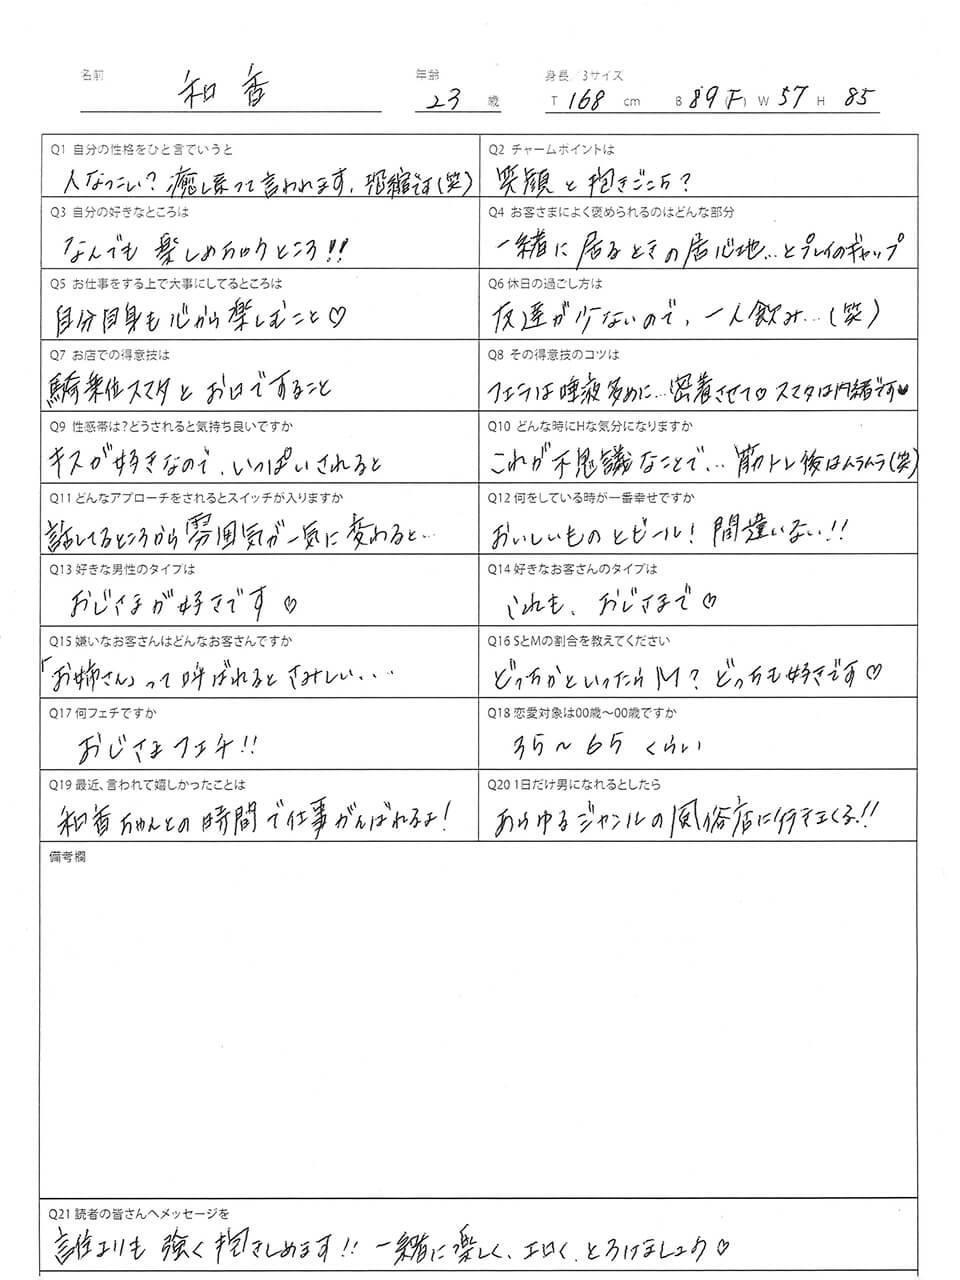 名前 和香 年齢 23 歳 身長/3サイズ T 168 cm B 89 (F) W 57 H 85
Q1 自分の性格をひと言でいうと
人なつこい?癒し系って言われます、恐縮です(笑)
Q2 チャームポイントは
笑顔と抱きごこち?
Q3 自分の好きなところは
なんでも楽しめちゃうところ!!
Q4 お客さまによく褒められるのはどんな部分
一緒に居るときの居心地…とプレイのギャップ
Q5 お仕事をする上で大事にしてるところは
自分自身も心から楽しむこと♡
Q6 休日の過ごし方は
友達が少ないので、一人飲み…(笑)
Q7 お店での得意技は
騎乗位スマタとお口ですること
Q8 その得意技のコツは
フェラは唾液多めに…密着させて♡スマタは内緒です♥
Q9 性感帯は?どうされると気持ち良いですか
キスが好きなので、いっぱいされると
Q10 どんな時にHな気分になりますか
これが不思議なことで…筋トレ後はムラムラ(笑)
Q11 どんなアプローチをされるとスイッチが入りますか
話してるところから雰囲気が一気に変わると…
Q12 何をしている時が一番幸せですか
おいしいものとビール!間違いない!!
Q13 好きな男性のタイプは
おじさまが好きです♡
Q14 好きなお客さんのタイプは
これも、おじさまで♡
Q15 嫌いなお客さんはどんなお客さんですか
「お姉さん」って呼ばれるとさみしい...
Q16 SとMの割合を教えてください
どっちかといったらM?どっちも好きです♡
Q17 何フェチですか
おじさまフェチ!!
Q18 恋愛対象は00歳〜00歳ですか
35〜65くらい
Q19 最近、言われて嬉しかったことは
和香ちゃんとの時間で仕事がんばれるよ!
Q20 1日だけ男になれるとしたら
あらゆるジャンルの風俗店に行きまくる!!
備考欄
Q21 読者の皆さんへメッセージを
誰よりも強く抱きしめます!!一緒に楽しく、エロく、とろけましょう♡